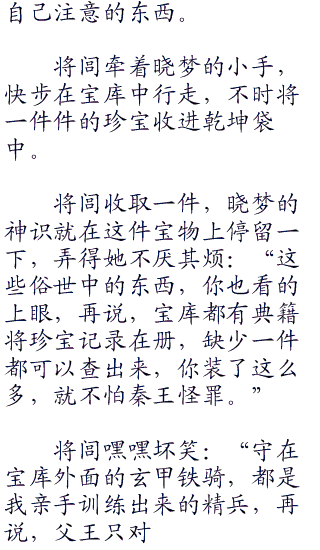 自己注意的东西。
将闾牵着晓梦的小手，
快步在宝库中行走，不时将
一件件的珍宝收进乾坤袋
中。
将闾收取一件，晓梦的
神识就在这件宝物上停留一
下，弄得她不厌其烦：“这
些俗世中的东西，你也看的
上眼，再说，宝库都有典籍
将珍宝记录在册，缺少一件
都可以查出来，你装了这么
多，就不怕秦王怪罪。”
将闾嘿嘿坏笑：“守在
宝库外面的玄甲铁骑，都是
我亲手训练出来的精兵，再
说，父王只对